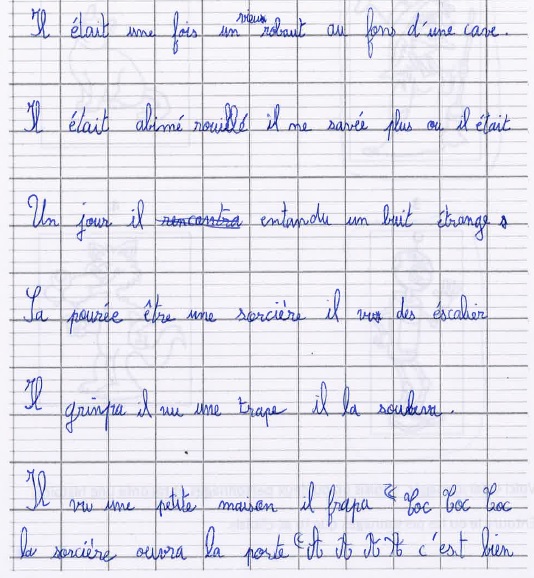 Il était une fois un vieux robaut au fons d'une cave.
Il était abimé rouillé il ne savée plus ou il était
Un jour il rencontra entandu un buit étrange
Sa pourée être une sorcière il vu des éscalier
Il grinpa il vu une trape il la souleva.
Il vu une petite maison il frapa " Toc Toc Toc
la sorcière ouvra la porte " A A A A c'est bien